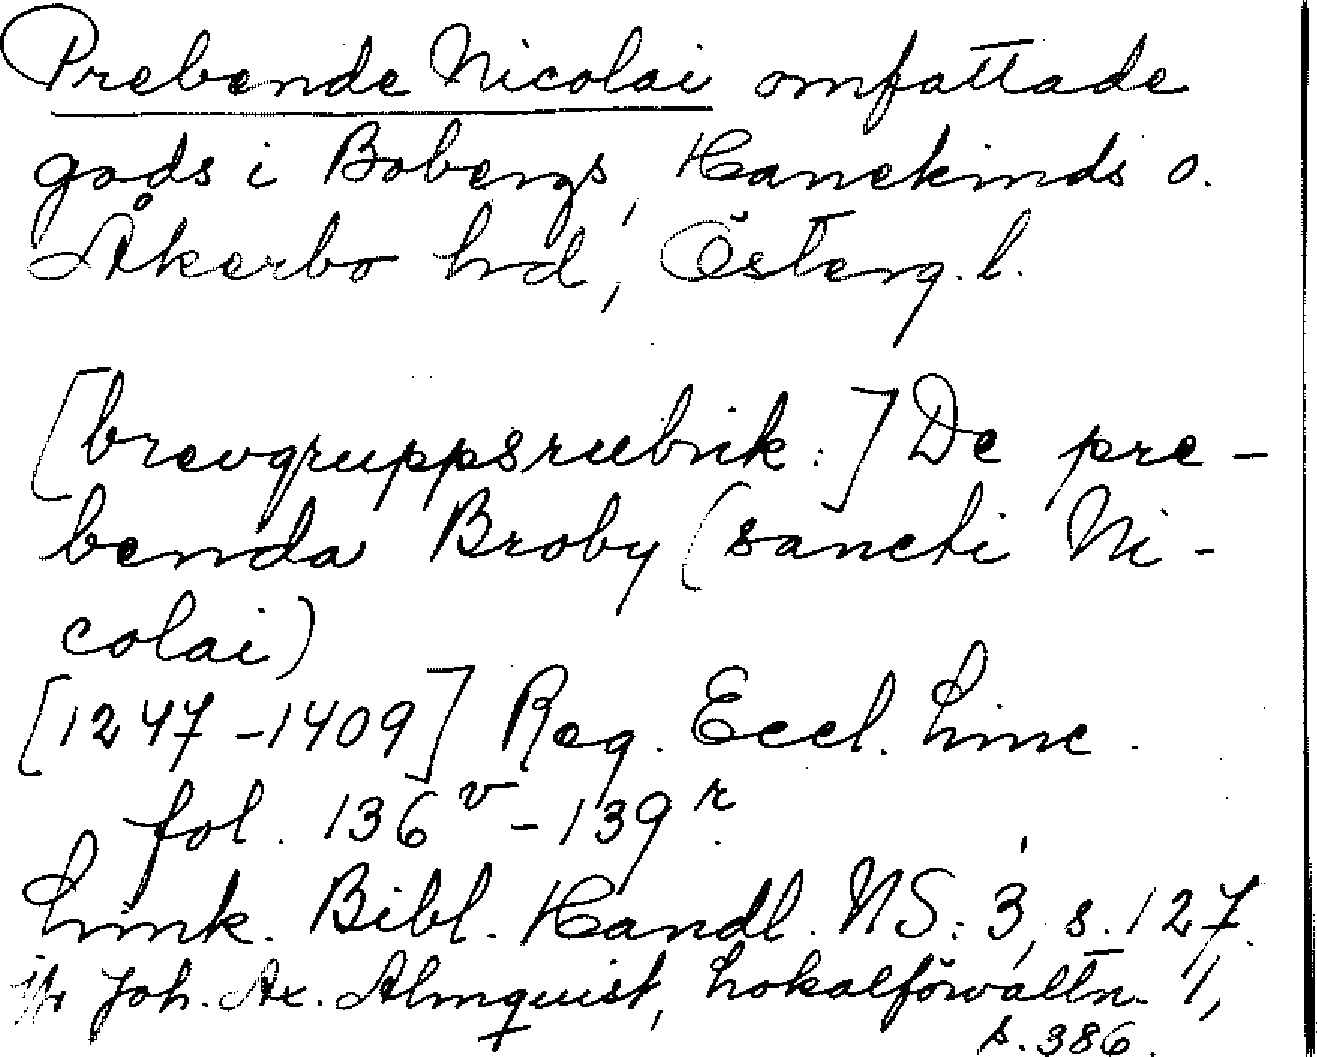 Prebende Nicolai omfattade
gods i Bobergs, Hanekinds o.
Åkerbo hd, Österg. l.
[brevgruppsrubrik:] De pre-
benda Broby (sancti Ni-
colai)
[1247-1409] Reg. Eccl. Linc.
fol. 136v-139r.
Link. Bibl. Handl. NS: 3, s. 127.
jfr Joh. Ax. Almquist, Lokalförvaltn. 1,
s. 386.